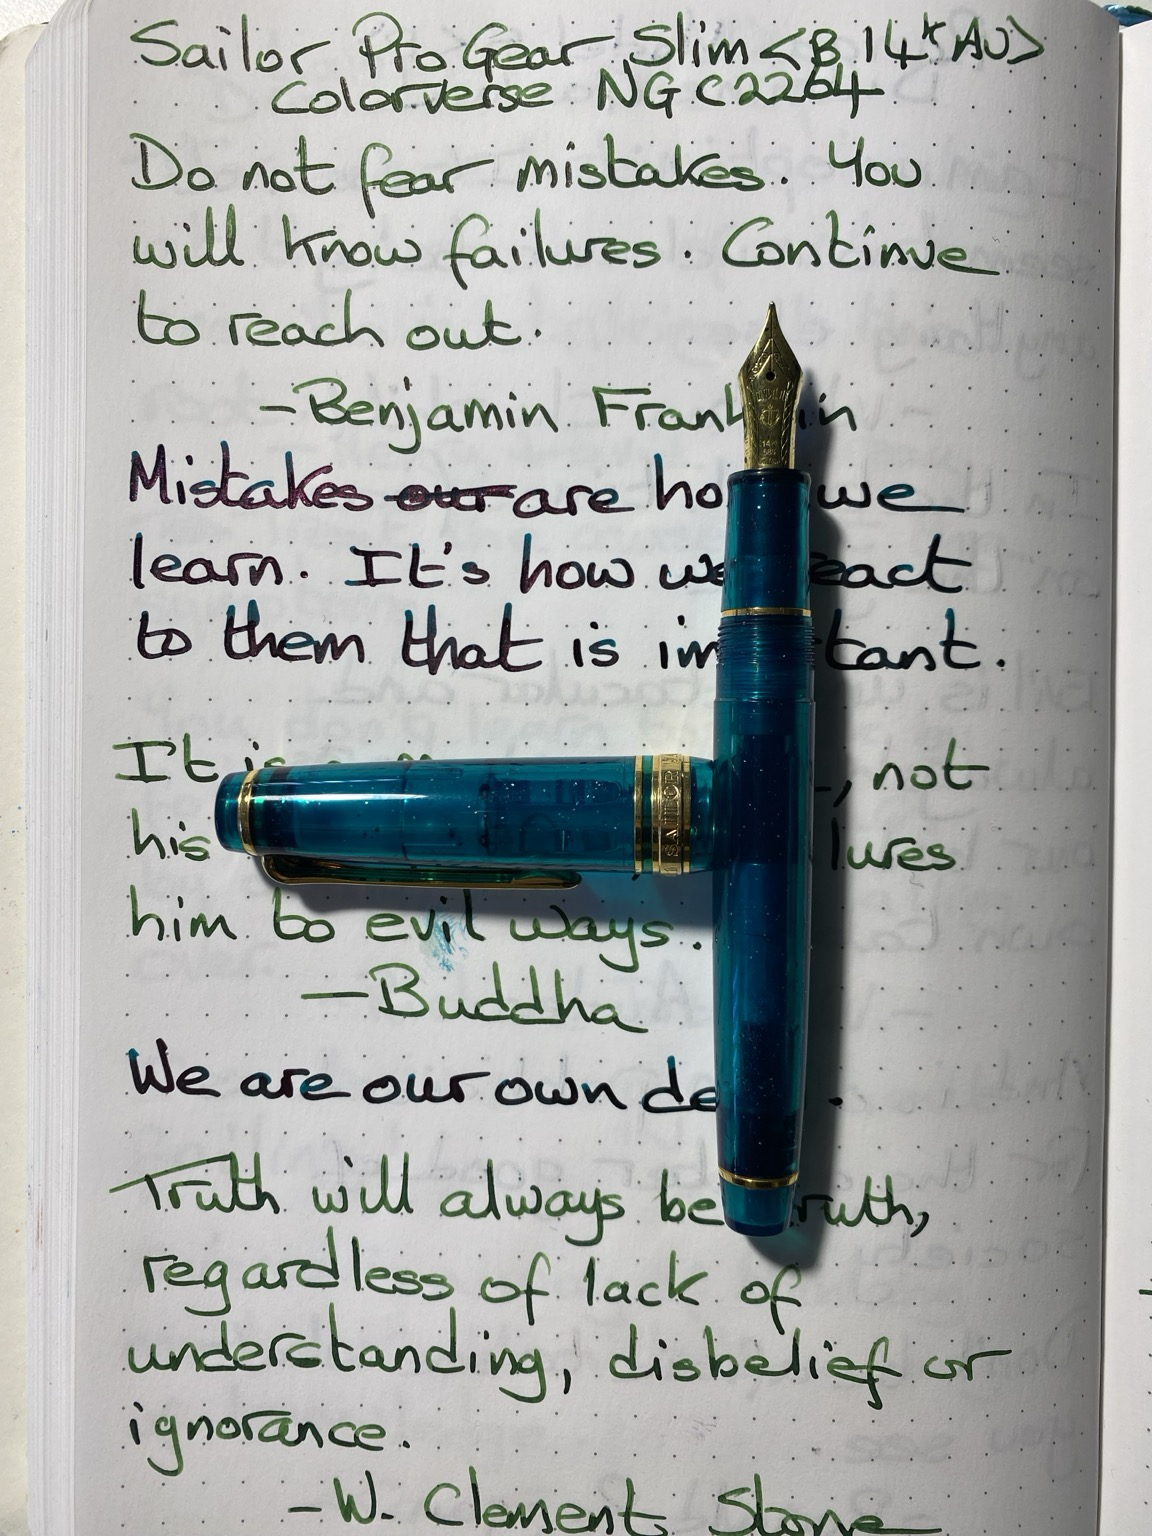 Sailor Pro Gear Slim <B 14k Au>
Colorverse NGC2264
Do not fear mistakes. You
will know failures. Continue
to reach out.
-Benjamin Frank in
Mistakes our are ho we
learn. It's how we eact
to them that is im tant.
It is , not
his lures
him to evil ways.
-Buddha
We are our own de .
Truth will always be ruth,
regardless of lack of
understanding, disbelief or
ignorance.
-W. Clement Stone
SAILOR
14K
585